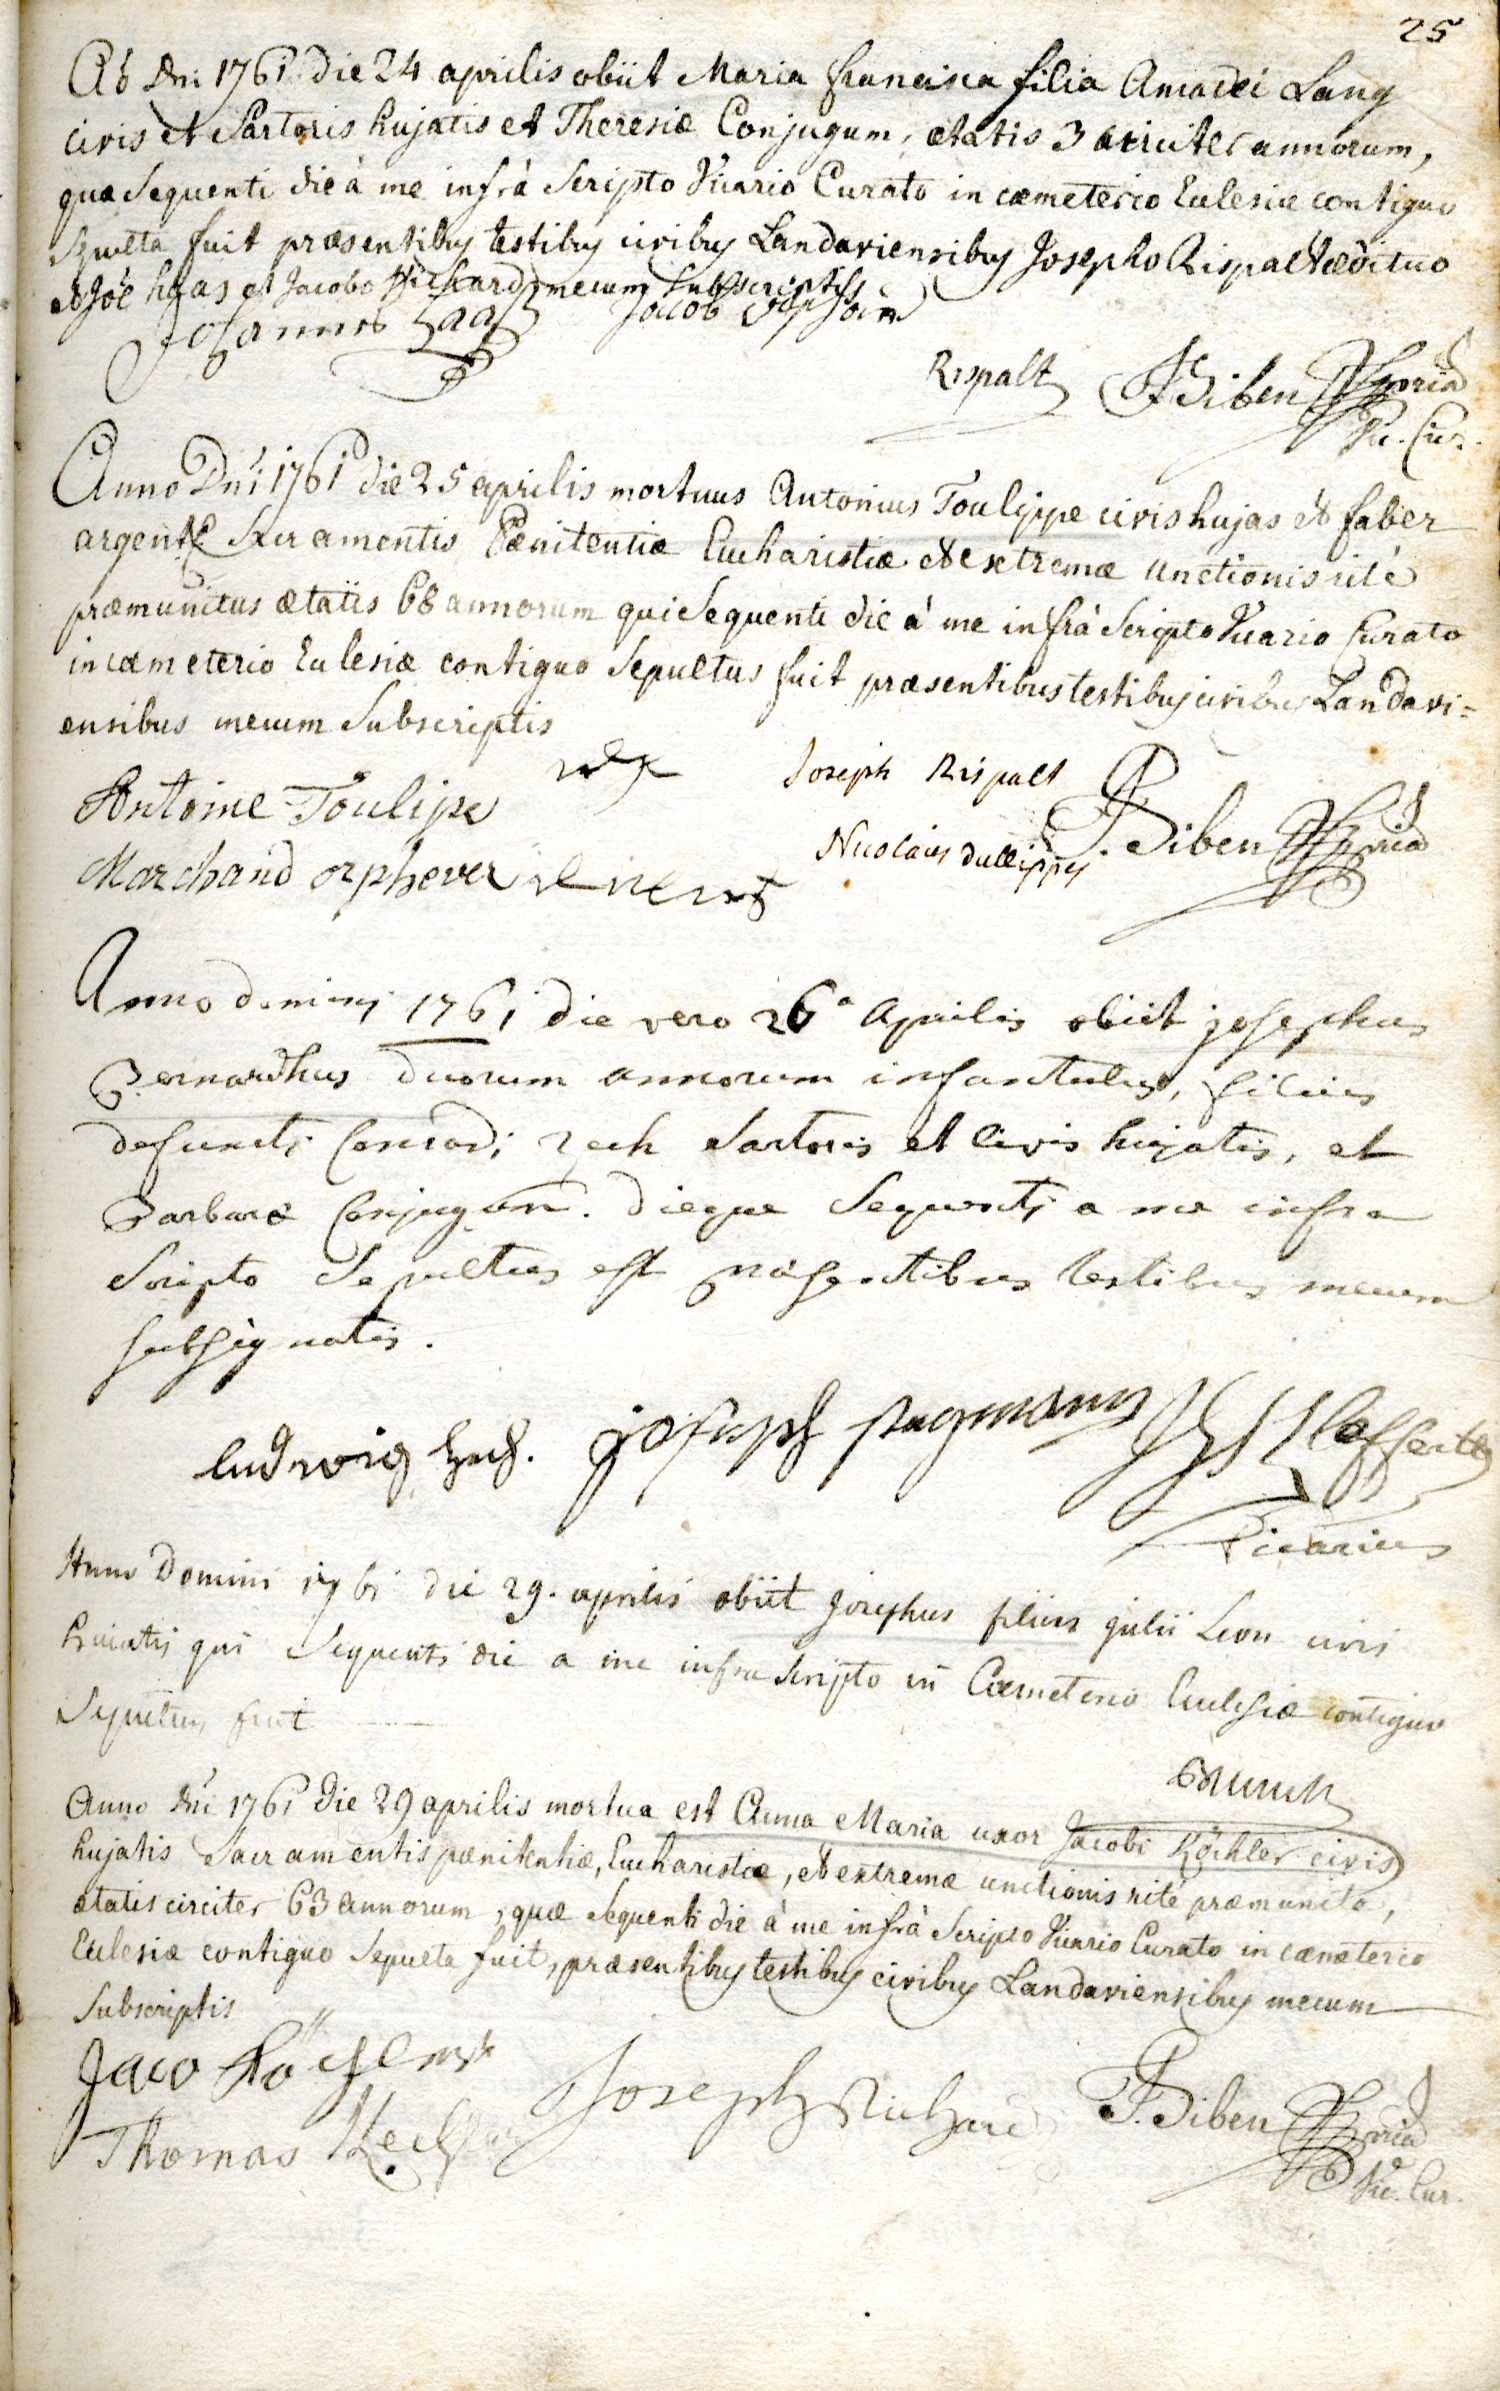 25
Aô Dni 1761 die 24 aprilis obiit Maria francisca filia Amadei Lang
civis et Sartoris hujatis et Theresiæ Conjugum, ætatis 3 circiter annorum,
quæ Sequenti die à me infrà Scripto Vicario Curato in cæmeterio Eclesiæ contiguo
Sepulta fuit præsentibus testibus civibus Landaviensibus Josepho Rispalt ædituo
et Joē haas et Jacobo Richard mecum subscriptis
Johannes Haas Jacob
Rispalt Biben
Vic. Cur.
Anno Dni 1761 die 25 aprilis mortuus Antonius Toulippe civis hujas et faber
argent Sacramentis Pænitentiæ Eucharistiæ et extremæ unctionis ritè
præmunitus ætatis 68 annorum qui Sequenti die à me infrà Scripto Vicario Curato
in cæmeterio Eclesiæ contiguo Sepultus fuit præsentibus testibus civibus Landavi=
ensibus mecum Subscriptis
Antoine Toulipe Joseph Rispalt
Marchand orphever Nicolaus dullippes P. Biben
Anno domini 1761 die vero 26a Aprilis obiit josephus
Bernardhus duorum annorum infantulus, filius
defuncti Conradi Zech Sartoris et Civis hujatis, et
Barbaræ Conjugum. dieque Sequenti a me infra
Scripto Sepultus est præsentibus testibus mecum
subsignatis.
ludwig Zech. joseph
Vicarius
Anno Domini 1761 die 29. aprilis obiit Josephus filius julii Leon civis
huiatis qui Sequenti die a me infra scripto in Cæmeterio Ecclesiæ contiguo
Sepultus fuit
Anno Dni 1761 die 29 aprilis mortua est Anna Maria uxor Jacobi Köchler civis
hujatis Sacramentis pænitentiæ, Eucharistiæ, et extremæ unctionis ritè præmunita,
ætatis circiter 63 annorum, quæ Sequenti die à me infrà Scripto Vicario Curato in cæmeterio
Eclesiæ contiguo Sepulta fuit, præsentibus testibus civibus Landaviensibus mecum
Subscriptis
Jaco Joseph Richard P. Biben
Thomas
Vic. Cur.